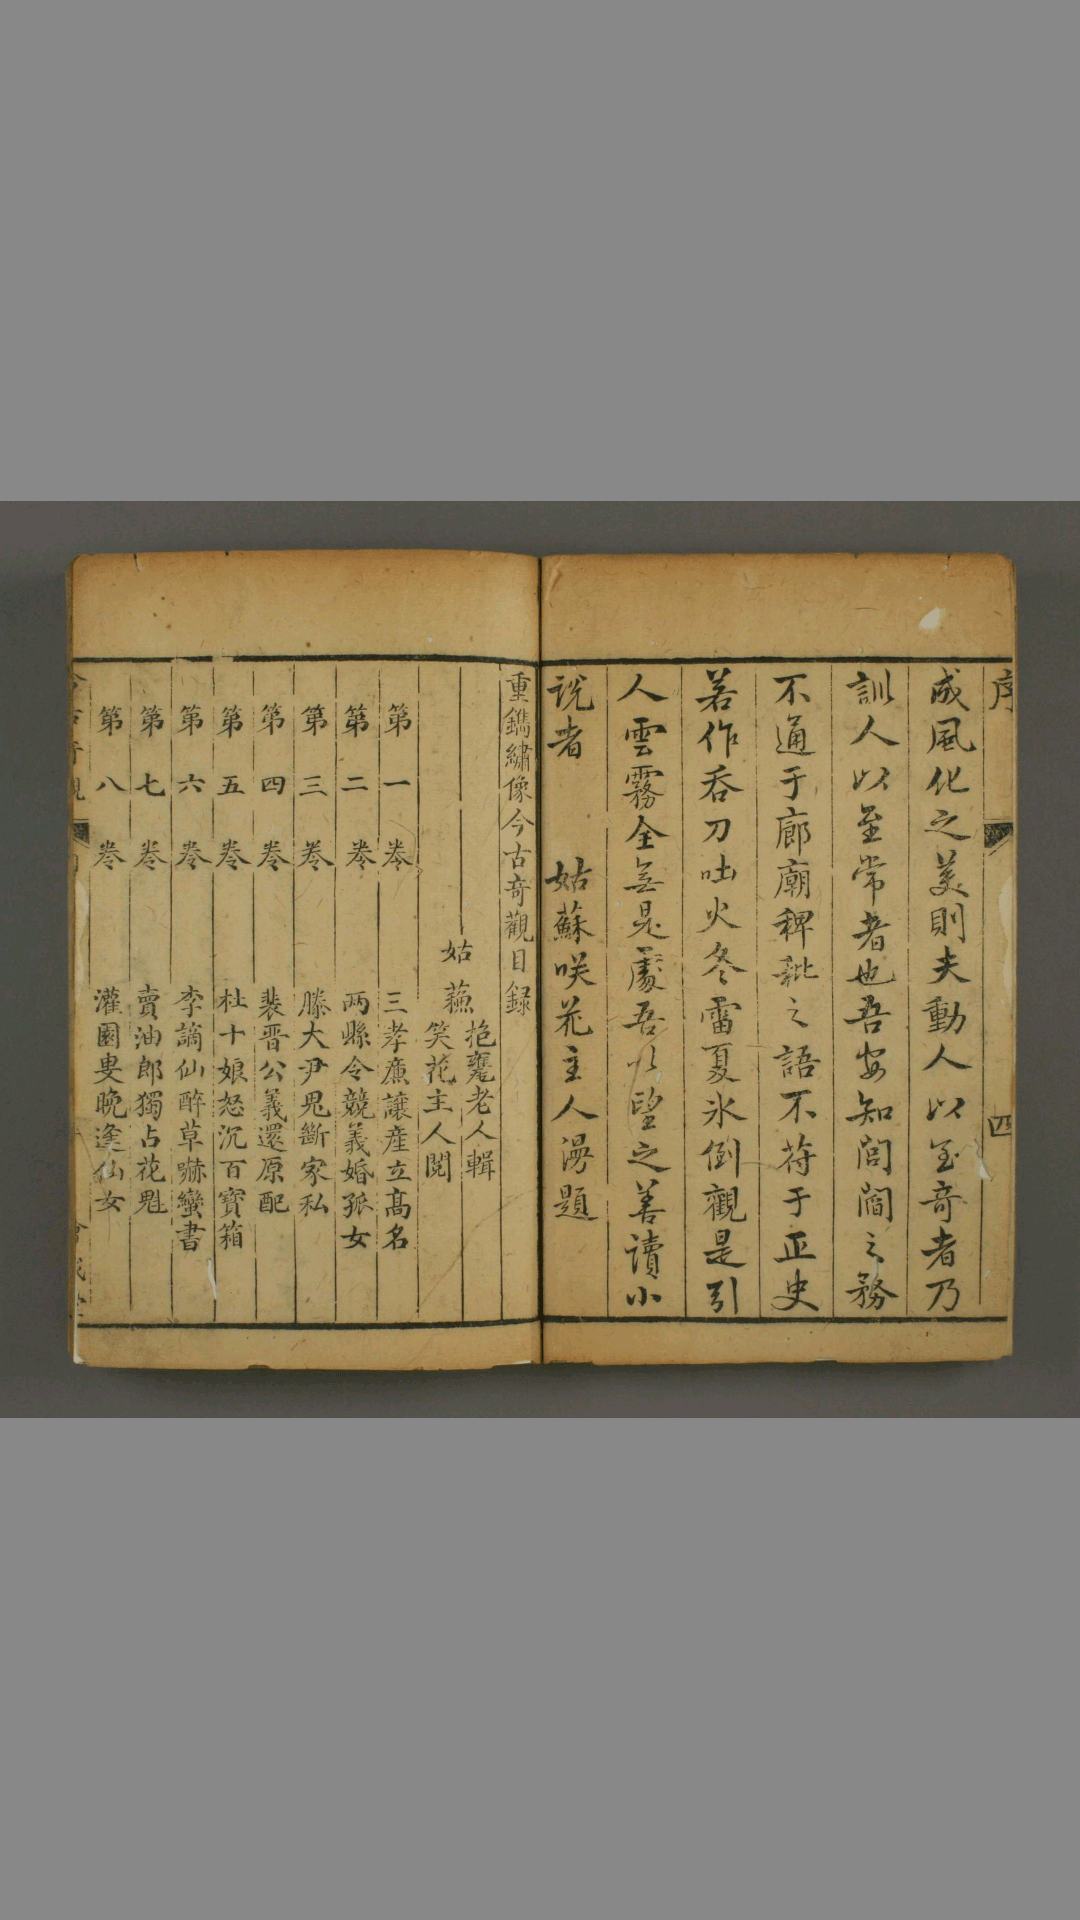 序
四
成風化之美則夫動人以至奇者乃
訓人以至常者也吾安知閭閻之務
不通于廊廟稗秕之語不符于正史
若作吞刀吐火冬雷夏氷倒觀是引
人雲霧全無是處吾以望之善讀小
説者
姑蘇咲花主人漫題
重鐫繡像今古奇觀目録
姑蘇
抱甕老人輯
笑花主人閲
第一卷 三孝廉讓産立髙名
第二卷 两縣令競義婚孤女
第三卷 滕大尹鬼斷家私
第四卷 裴晋公義還原配
第五卷 杜十娘怒沉百寳箱
第六卷 李謫仙醉草嚇蠻書
第七卷 賣油郎獨占花魁
第八卷 灌園叟晩逢仙女